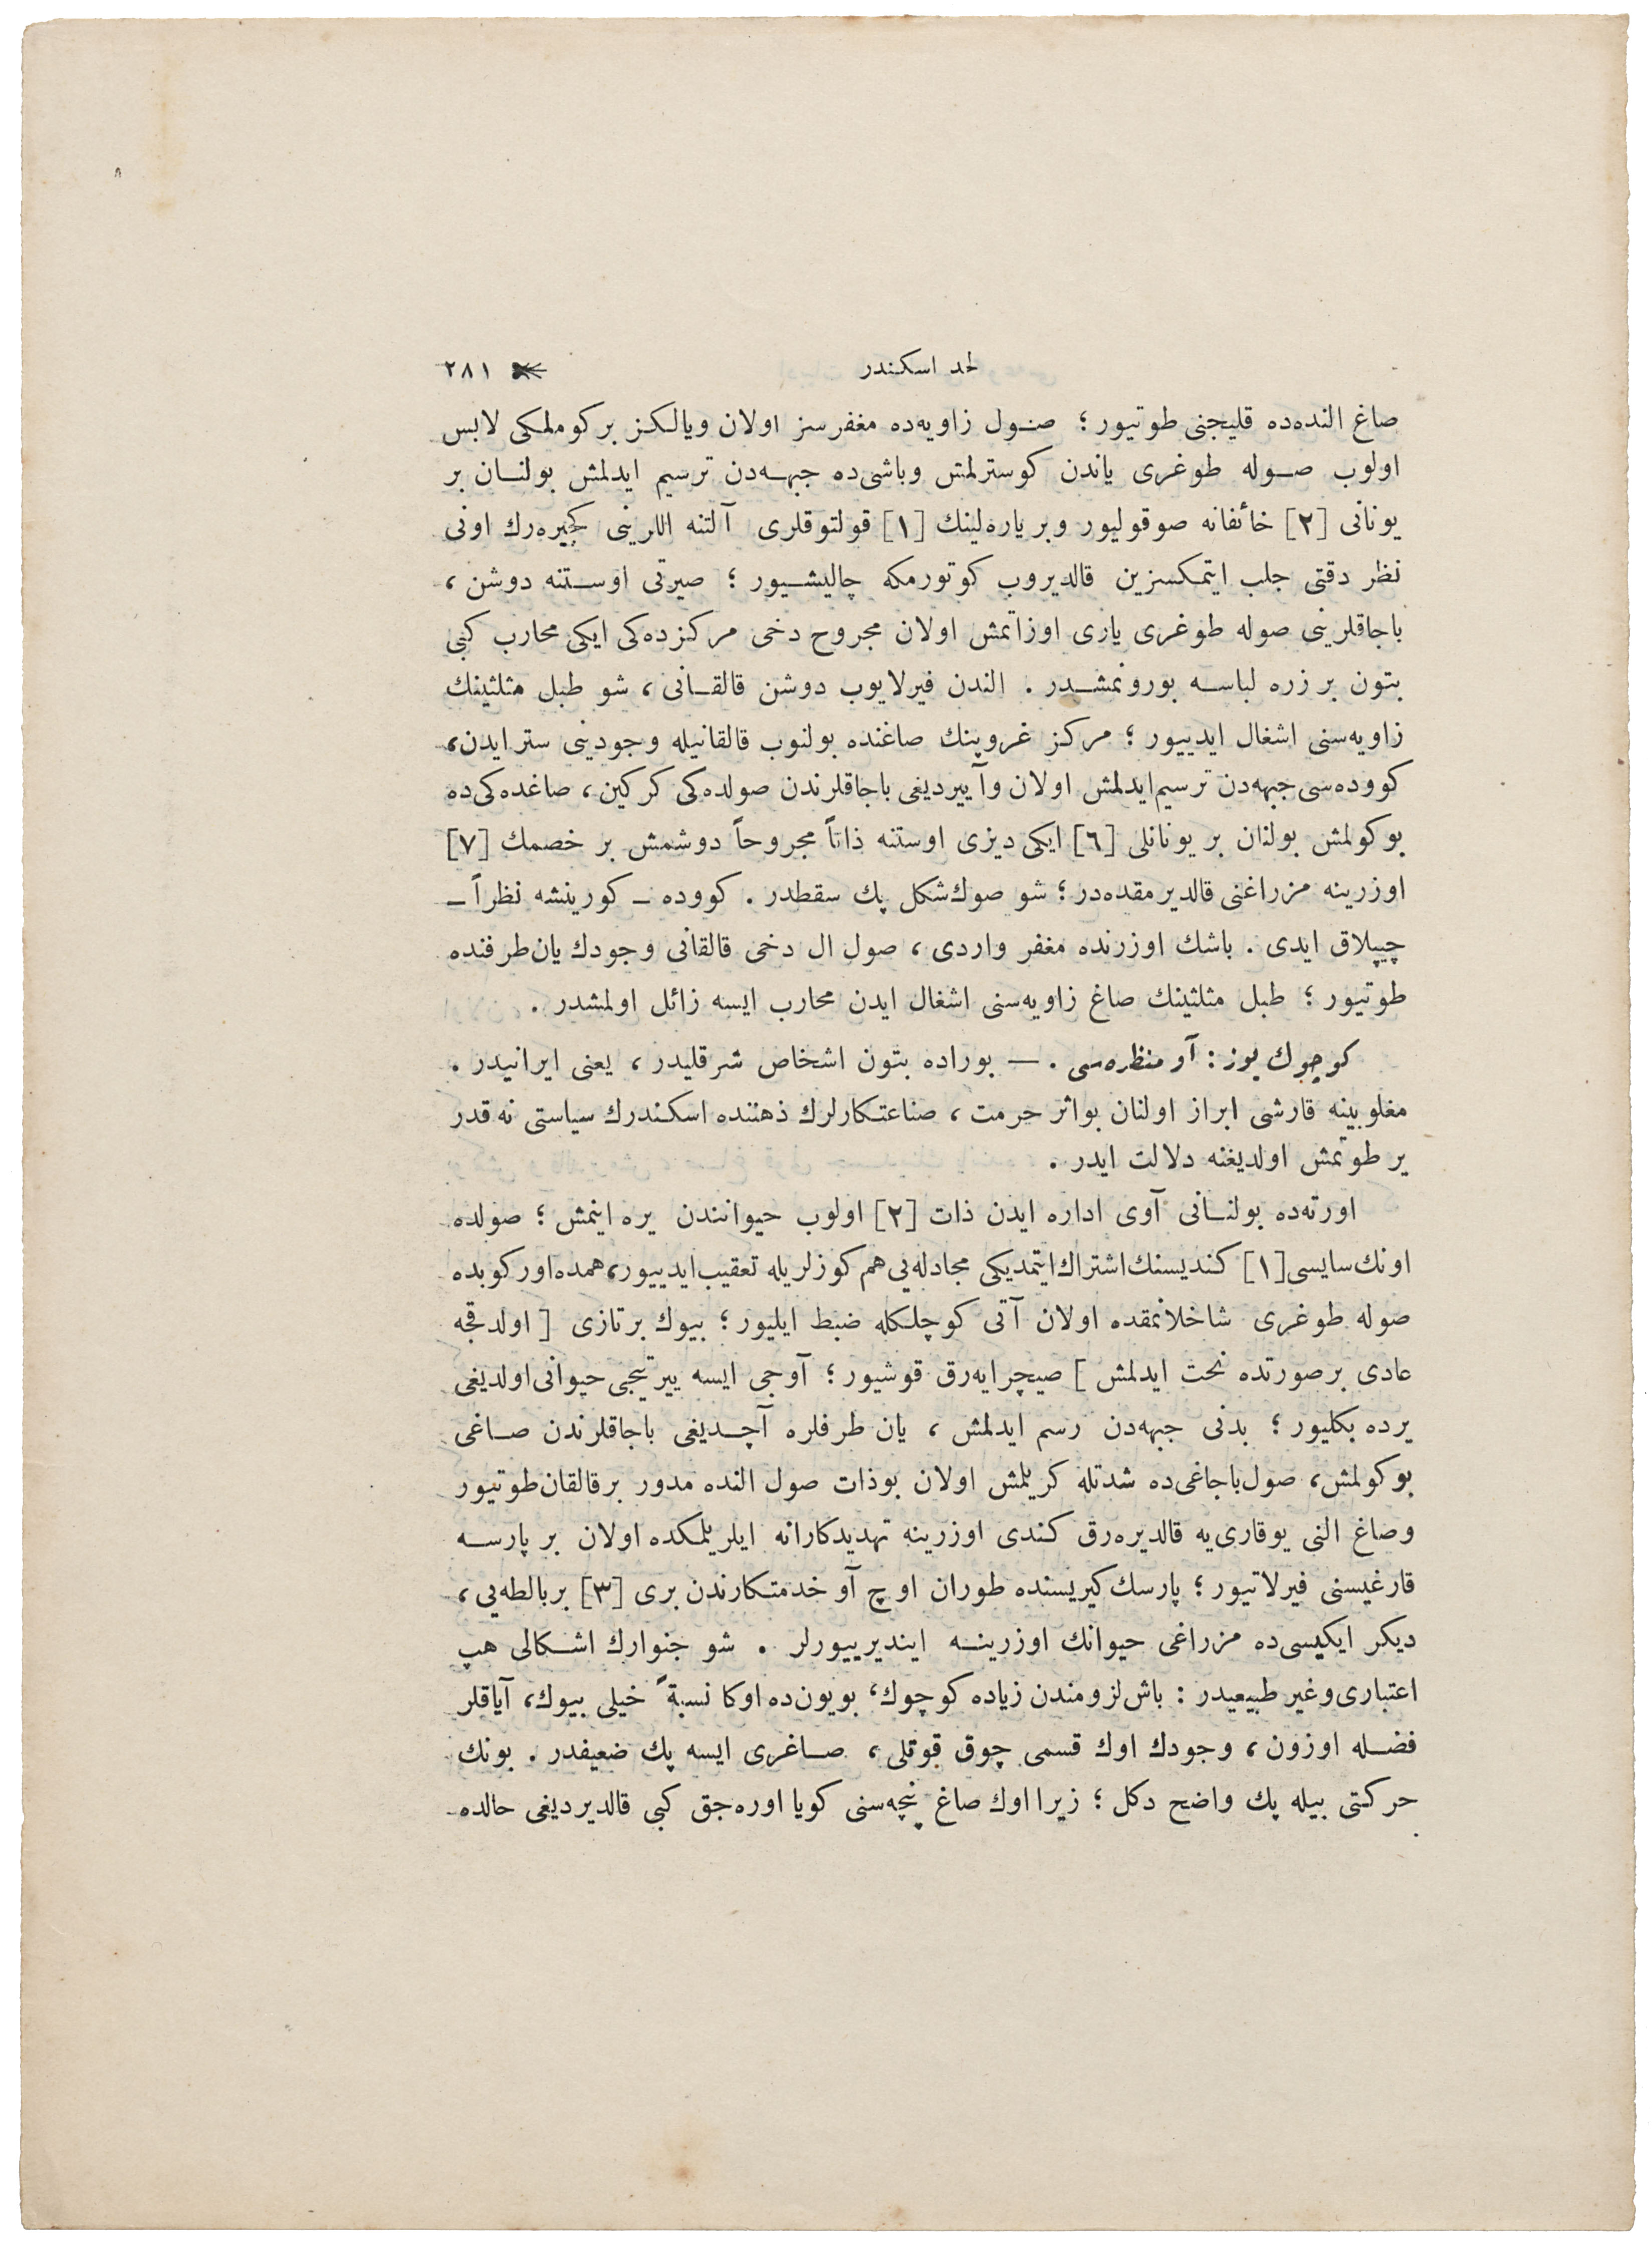 لحد اسكندر ٢٨١
صاغ النده‌ده قليجنى طوتيور ؛ صول زاويه‌ده مغفرسز اولان ويالكز بر كوملكى لابس
اولوب صوله طوغرى ياندن كوسترلمش وباشى‌ده جبهه‌دن ترسيم ايدلمش بولنان بر
يونانى [٢] خائفانه صوقوليور وبر ياره‌لينك [١] قولتوقلرى آلتنه اللرينى كچيره‌رك اونى
نظر دقتى جلب ايتمكسزين قالديروب كوتورمكه چاليشيور ؛ صيرتى اوستنه دوشن ،
باجاقلرينى صوله طوغرى يارى اوزاتمش اولان مجروح دخى مركزده‌كى ايكى محارب كبى
بتون بر زره لباسه بورونمشدر . الندن فيرلايوب دوشن قالقانى ، شو طبل مثلثينك
زاويه‌سنى اشغال ايدييور ؛ مركز غروپنك صاغنده بولنوب قالقانيله وجودينى ستر ايدن،
كووده‌سى جبهه‌دن ترسيم ايدلمش اولان وآييرديغى باجاقلرندن صولده‌كى كركين ، صاغده‌كى‌ده
بوكولمش بولنان بر يونانلى [٦] ايكى ديزى اوستنه ذاتاً مجروحاً دوشمش بر خصمك [٧]
اوزرينه مزراغنى قالديرمقده‌در ؛ شو صوك شكل پك سقطدر . كووده ــ كورينشه نظراً ــ
چيپلاق ايدى . باشك اوزرنده مغفر واردى ، صول ال دخى قالقانى وجودك يان طرفنده
طوتيور ؛ طبل مثلثينك صاغ زاويه‌سنى اشغال ايدن محارب ايسه زائل اولمشدر .
كوچوك يوز : آو منظره‌سى . — بوراده بتون اشخاص شرقليدر ، يعنى ايرانيدر .
مغلوبينه قارشى ابراز اولنان بو اثر حرمت ، صناعتكارلرك ذهننده اسكندرك سياستى نه قدر
ير طوتمش اولديغنه دلالت ايدر .
اورته‌ده بولنانى آوى اداره ايدن ذات [٢] اولوب حيواننندن يره اينمش ؛ صولده
اونك سايسى [١] كنديسنك اشتراك ايتمديكى مجادله‌يى هم كوزلريله تعقيب ايدييور، همده اوركوبده
صوله طوغرى شاخلانمقده اولان آتى كوچلكله ضبط ايليور ؛ بيوك بر تازى [ اولدقجه
عادى بر صورتده نحت ايدلمش ] صيچرايه‌رق قوشيور ؛ آوجى ايسه ييرتيجى حيوانى اولديغى
يرده بكليور ؛ بدنى جبهه‌دن رسم ايدلمش ، يان طرفلره آچديغى باجاقلرندن صاغى
بوكولمش، صول باجاغى‌ده شدتله كريلمش اولان بو ذات صول النده مدور بر قالقان طوتيور
وصاغ النى يوقارى‌يه قالديره‌رق كندى اوزرينه تهديدكارانه ايلريلمكده اولان بر پارسه
قارغيسنى فيرلاتيور ؛ پارسك كيريسنده طوران اوچ آو خدمتكارندن برى [٣] بر بالطه‌يى ،
ديكر ايكيسى‌ده مزراغى حيوانك اوزرينه اينديرييورلر . شو جنوارك اشكالى هپ
اعتبارى وغير طبيعيدر : باش لزومندن زياده كوچوك، بويون‌ده اوكا نسبةً خيلى بيوك، آياقلر
فضله اوزون ، وجودك اوك قسمى چوق قوتلى ، صاغرى ايسه پك ضعيفدر . بونك
حركتى بيله پك واضح دكل ؛ زيرا اوك صاغ پنچه‌سنى كويا اوره‌جق كبى قالديرديغى حالده